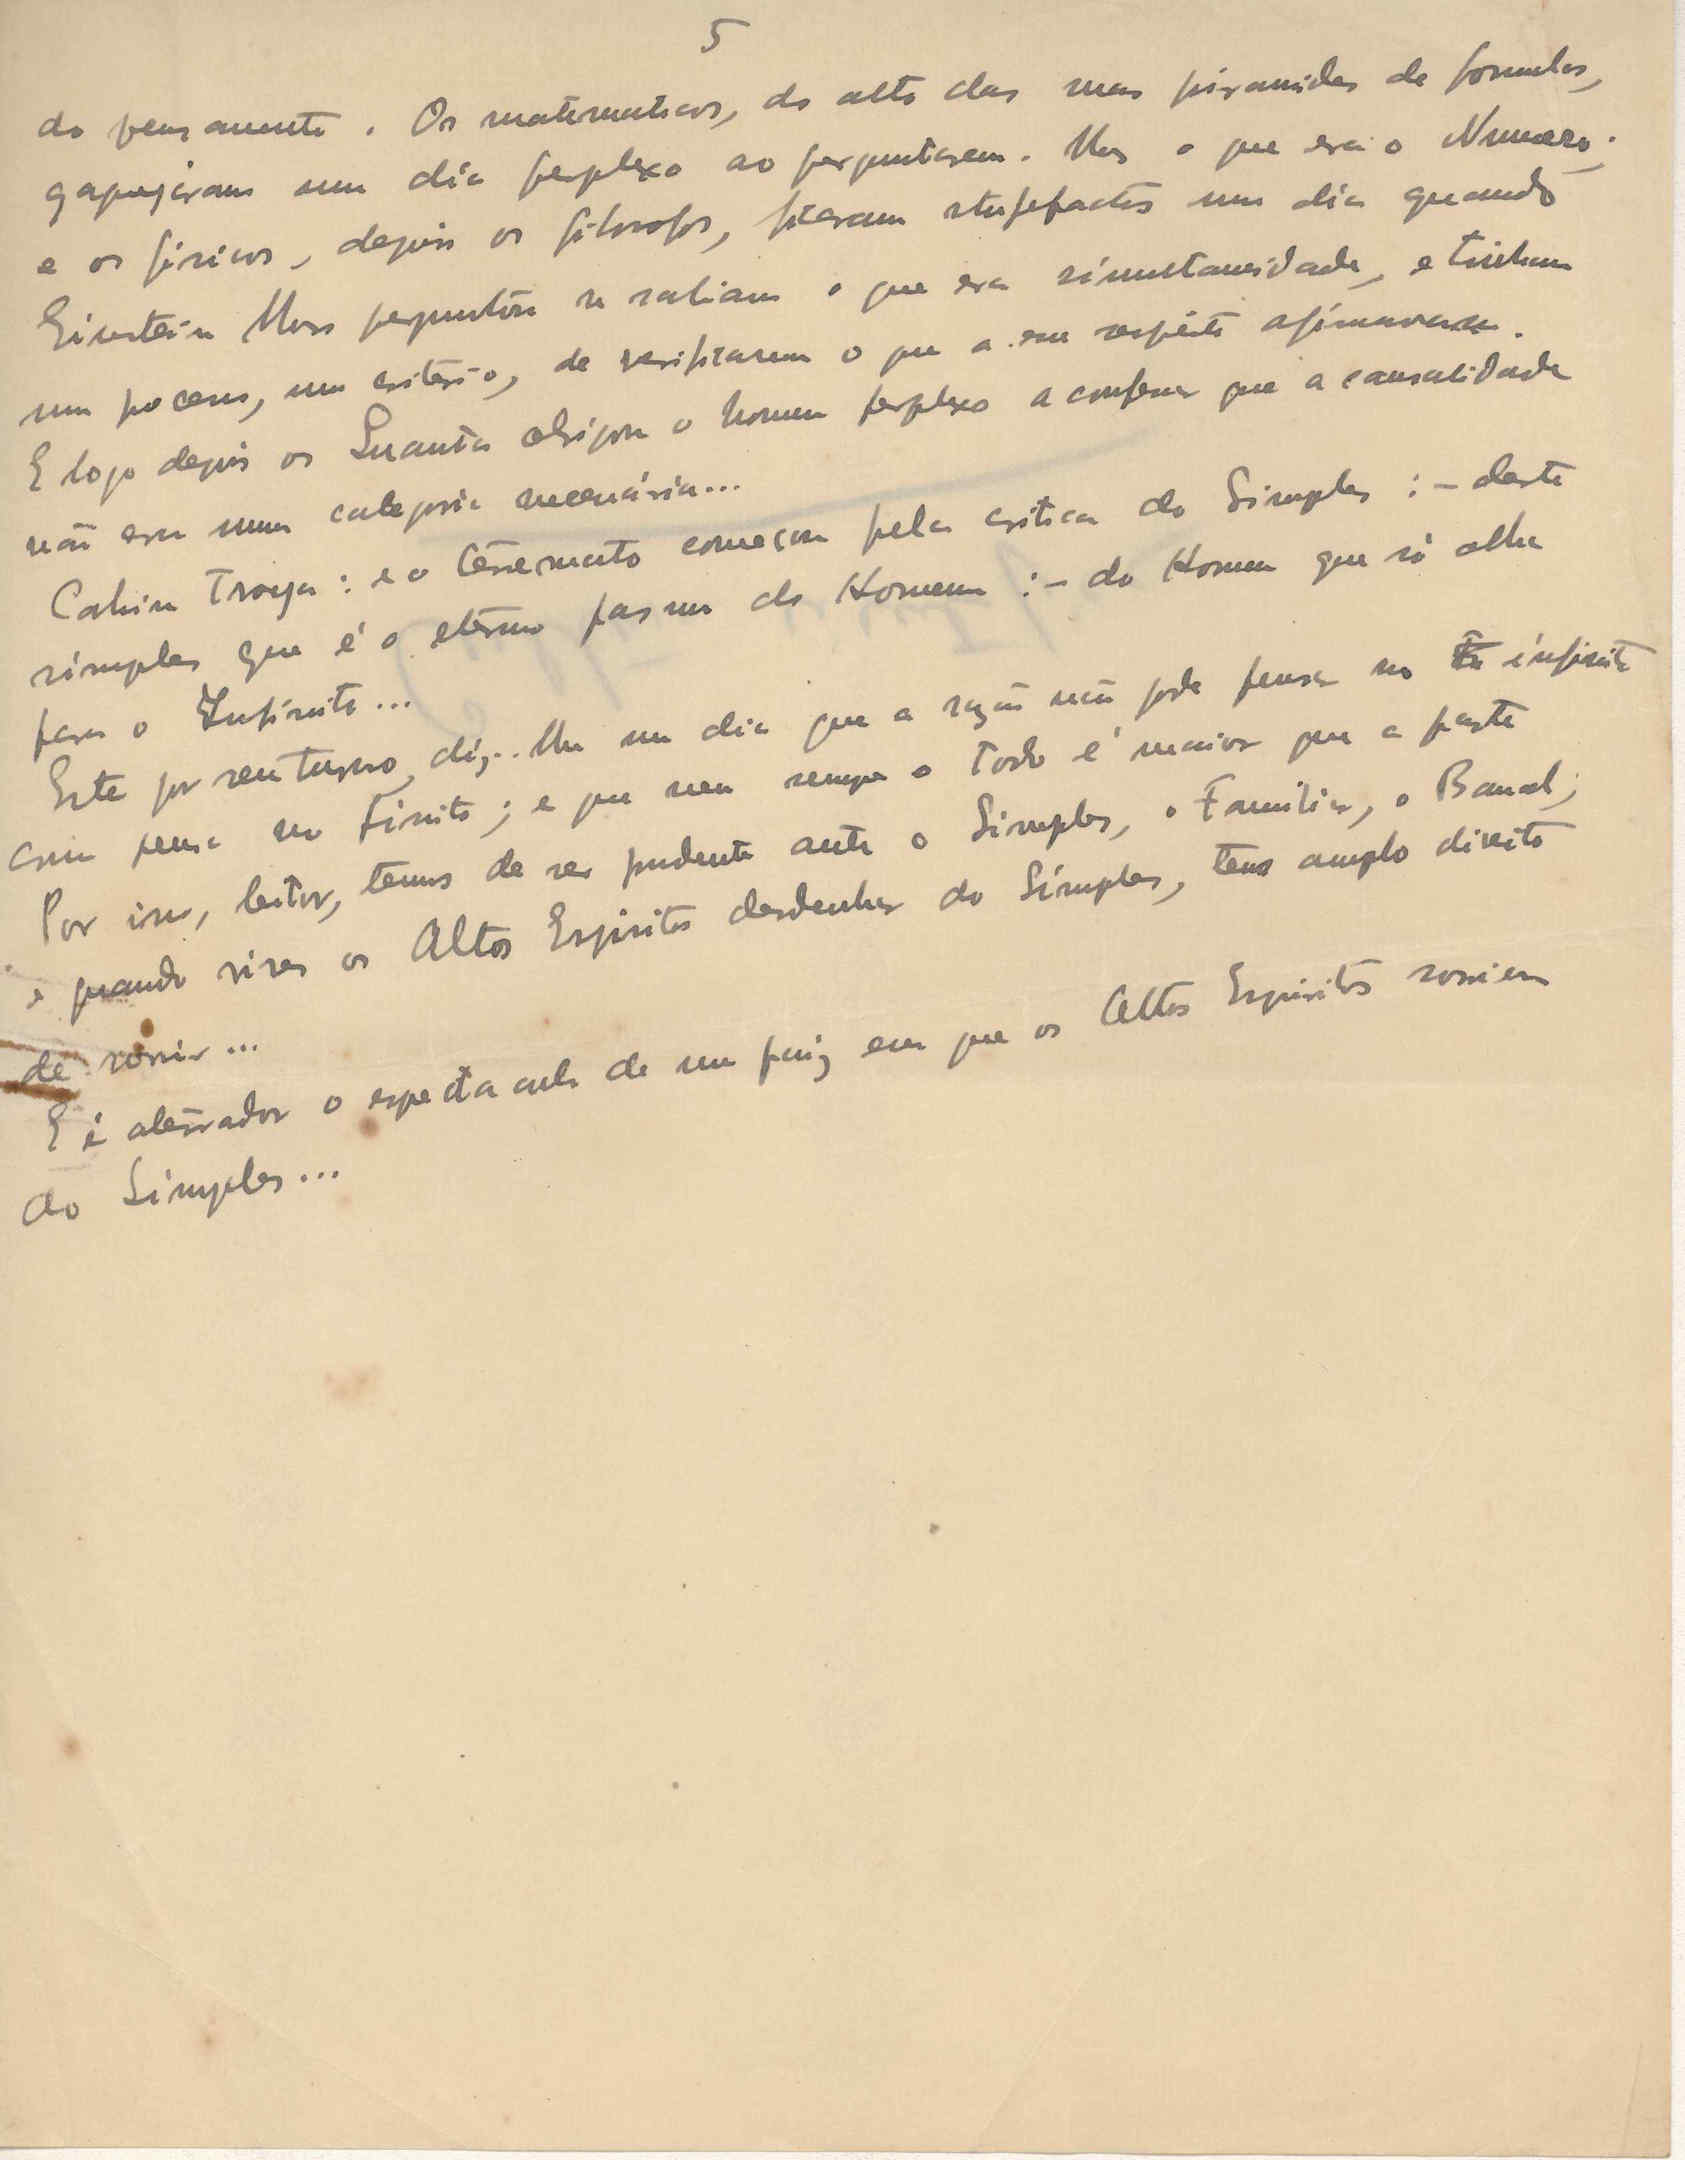 5
do pensamento. Os matematicos, do alto das suas piramides de formulas,
gaguejaram um dia perplexo ao perguntarem-lhes o que era o Numero;
e os fisicos, depois os filosofos, ficaram stupefactos um dia quando
Einstein lhes perguntou se sabiam o que era simultaneidade, e tinham
um processo, um criterio, de verificarem o que a seu respeito afirmavam.
E logo depois os Quanta obrigou o homem perplexo a confessar que a causalidade
não era uma categoria necessária...
Cahiu Troya: e o terremoto começou pela critica do Simples: – deste
simples que é o eterno pasmo do Homem: – do Homem que só olha
para o Infinito...
Este por seu turno, diz-lhe um dia que a razão não pode pensar no infinito
como pensa no Finito; e que nem sempre o Todo é maior que a parte
Por isso, leitor, temos de ser prudente ante o Simples, o Familiar, o Banal;
e quando vires os Altos Espiritos desdenhar do Simples, tens amplo direito
de sorrir...
E é aterrador o espectaculo de um paiz em que os Altos Espiritos sorriem
do Simples...